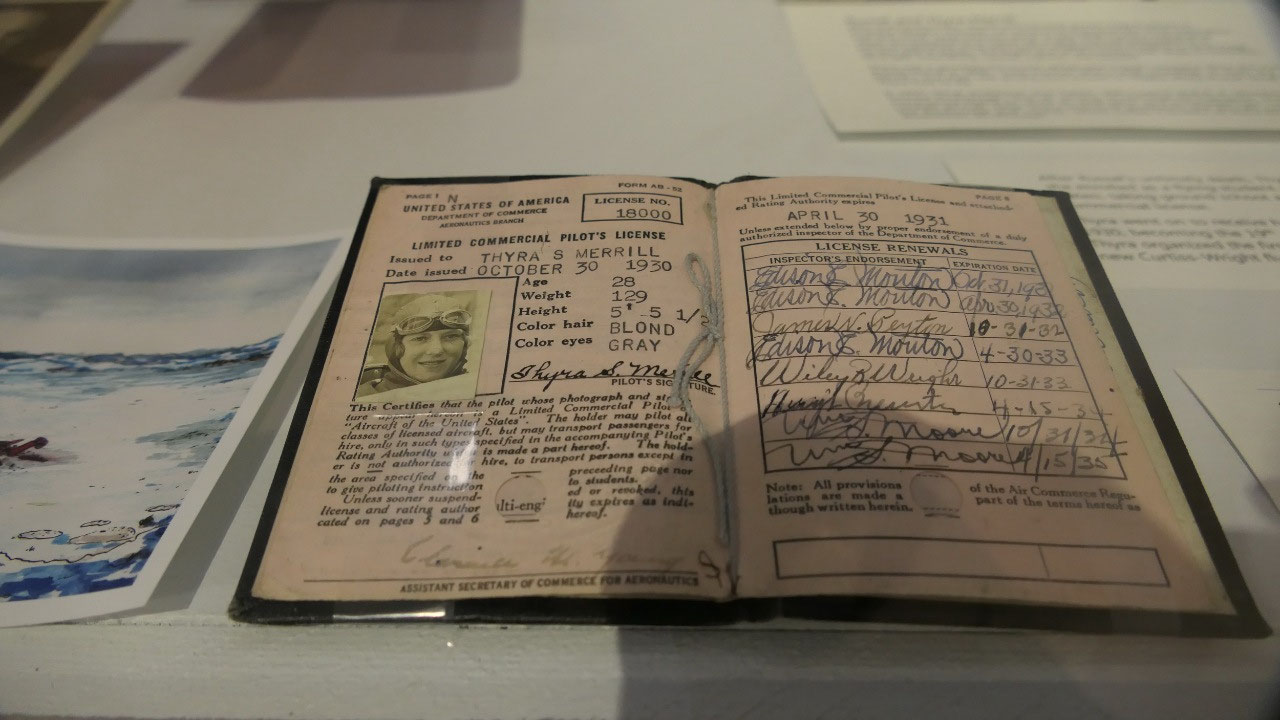 PAGE 1 N
FORM AB-52
UNITED STATES OF AMERICA
DEPARTMENT OF COMMERCE
AERONAUTICS BRANCH
LICENSE NO.
18000
LIMITED COMMERCIAL PILOT'S LICENSE
Issued to THYRA S MERRILL
Date issued OCTOBER 30 1930
Age 28
Weight 129
Height 5' 5 1/
Color hair BLOND
Color eyes GRAY
Thyra S. Merrill
PILOT'S SIGNATURE.
This Certifies that the pilot whose photograph and
ture is a Limited Commercial Pilot
"Aircraft of the United States". The holder may pilot all
classes of licensed aircraft, but may transport passengers for
hire, only in such types specified in the accompanying Pilot's
Rating Authority is made a part hereof. The hold-
er is not authorized for hire, to transport persons except in
the area specified on the preceding page nor
to give piloting instruction to students.
Unless sooner suspend- ed or revoked, this
license and rating author ity expires as indi-
cated on pages 5 and 6 hereof.
lti-eng
ASSISTANT SECRETARY OF COMMERCE FOR AERONAUTICS
PAGE 5
This Limited Commercial Pilot's License and attach-
ed Rating Authority expires
APRIL 30 1931
Unless extended below by proper endorsement of a duly
authorized inspector of the Department of Commerce.
LICENSE RENEWALS
INSPECTOR'S ENDORSEMENT EXPIRATION DATE
Edison E. Mouton Oct. 31, 193
Edison E. Mouton
James N. Peyton 10-31-32
Edison E. Mouton 4-30-33
Wiley R. Wright 10-31-33
Moore 10/31/34
Wm S Moore 4/15/35
Note: All provisions of the Air Commerce Regu-
lations are made a part of the terms hereof as
though written herein.
new Curtiss-Wright